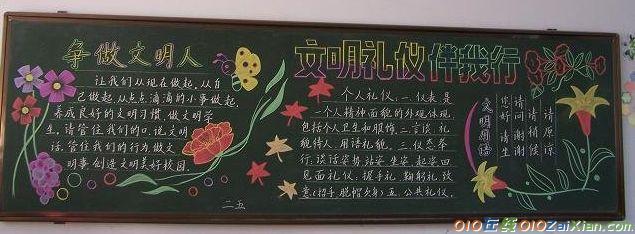 争做文明人
让我们从现在做起，从自
己做起，从点点滴滴的小事做起，
养成良好的文明习惯，做文明学
生，请管住我们的口，说文明
话，管住我们的行为，做文
明事，创造文明美好校园。
二五
文明礼仪伴我行
个人礼仪：一、仪表是
一个人精神面貌的外观体现，
包括个人卫生和服饰。二、言谈：礼
貌待人，用语礼貌。三、仪态举
行：谈话姿势、站姿、坐姿、起姿。四、
见面礼仪：握手礼、鞠躬礼、致
意（招手、脱帽、欠身）五、公共礼仪。
文明用语
请问 请原谅
您好 谢谢 请稍候
请坐
010在线 010ZaiXian.com